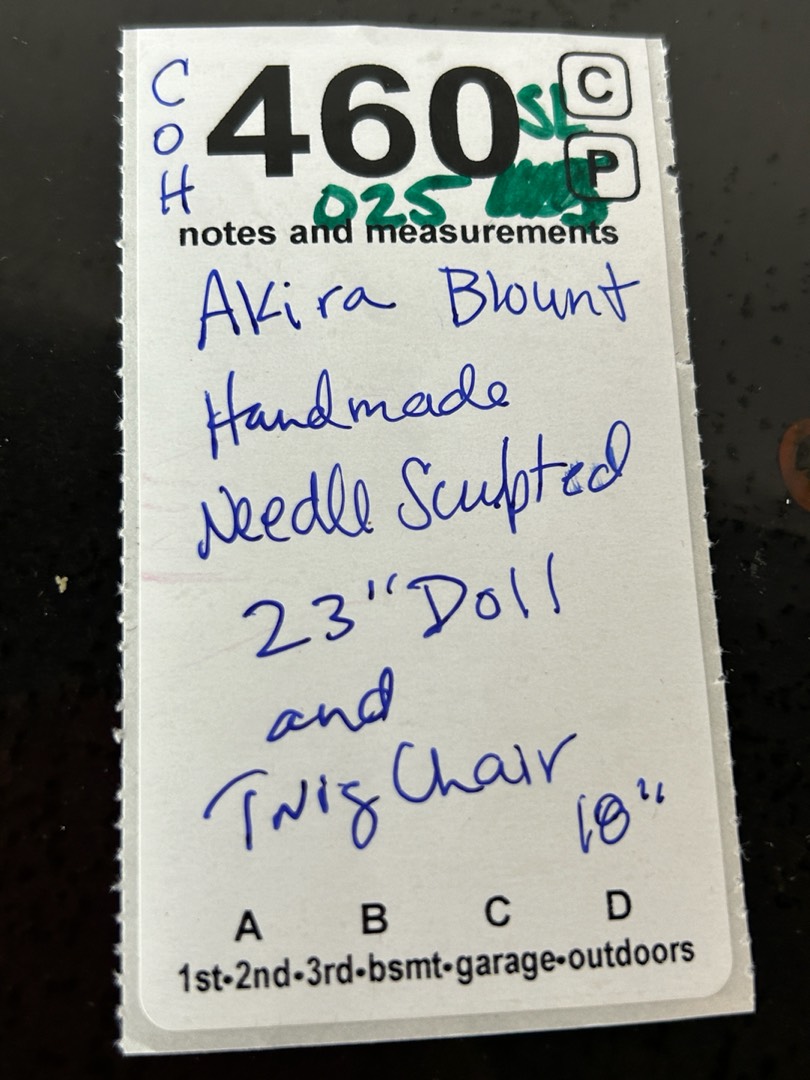 C
O
H
460
SL
C
P
025
notes and measurements
Akira Blount
Handmade
Needle Sculpted
23" Doll
and
Twig Chair
18"
A B C D
1st•2nd•3rd•bsmt•garage•outdoors